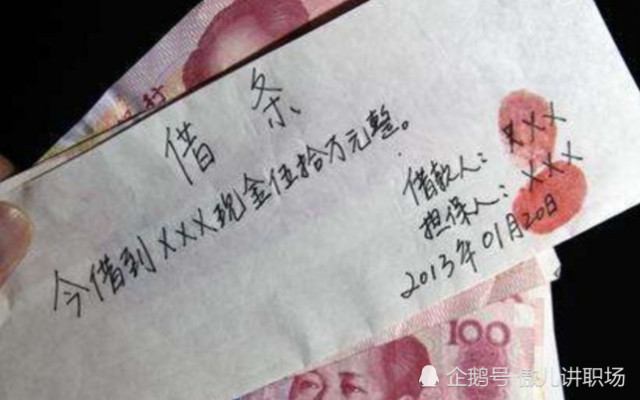 借条
今借到XXX现金伍拾万元整。
借款人：XXX
担保人：XXX
2013年01月20日
100
企鹅号 傲儿讲职场